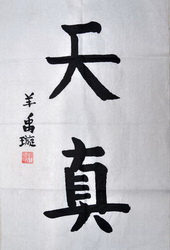 天真
羊禹璇